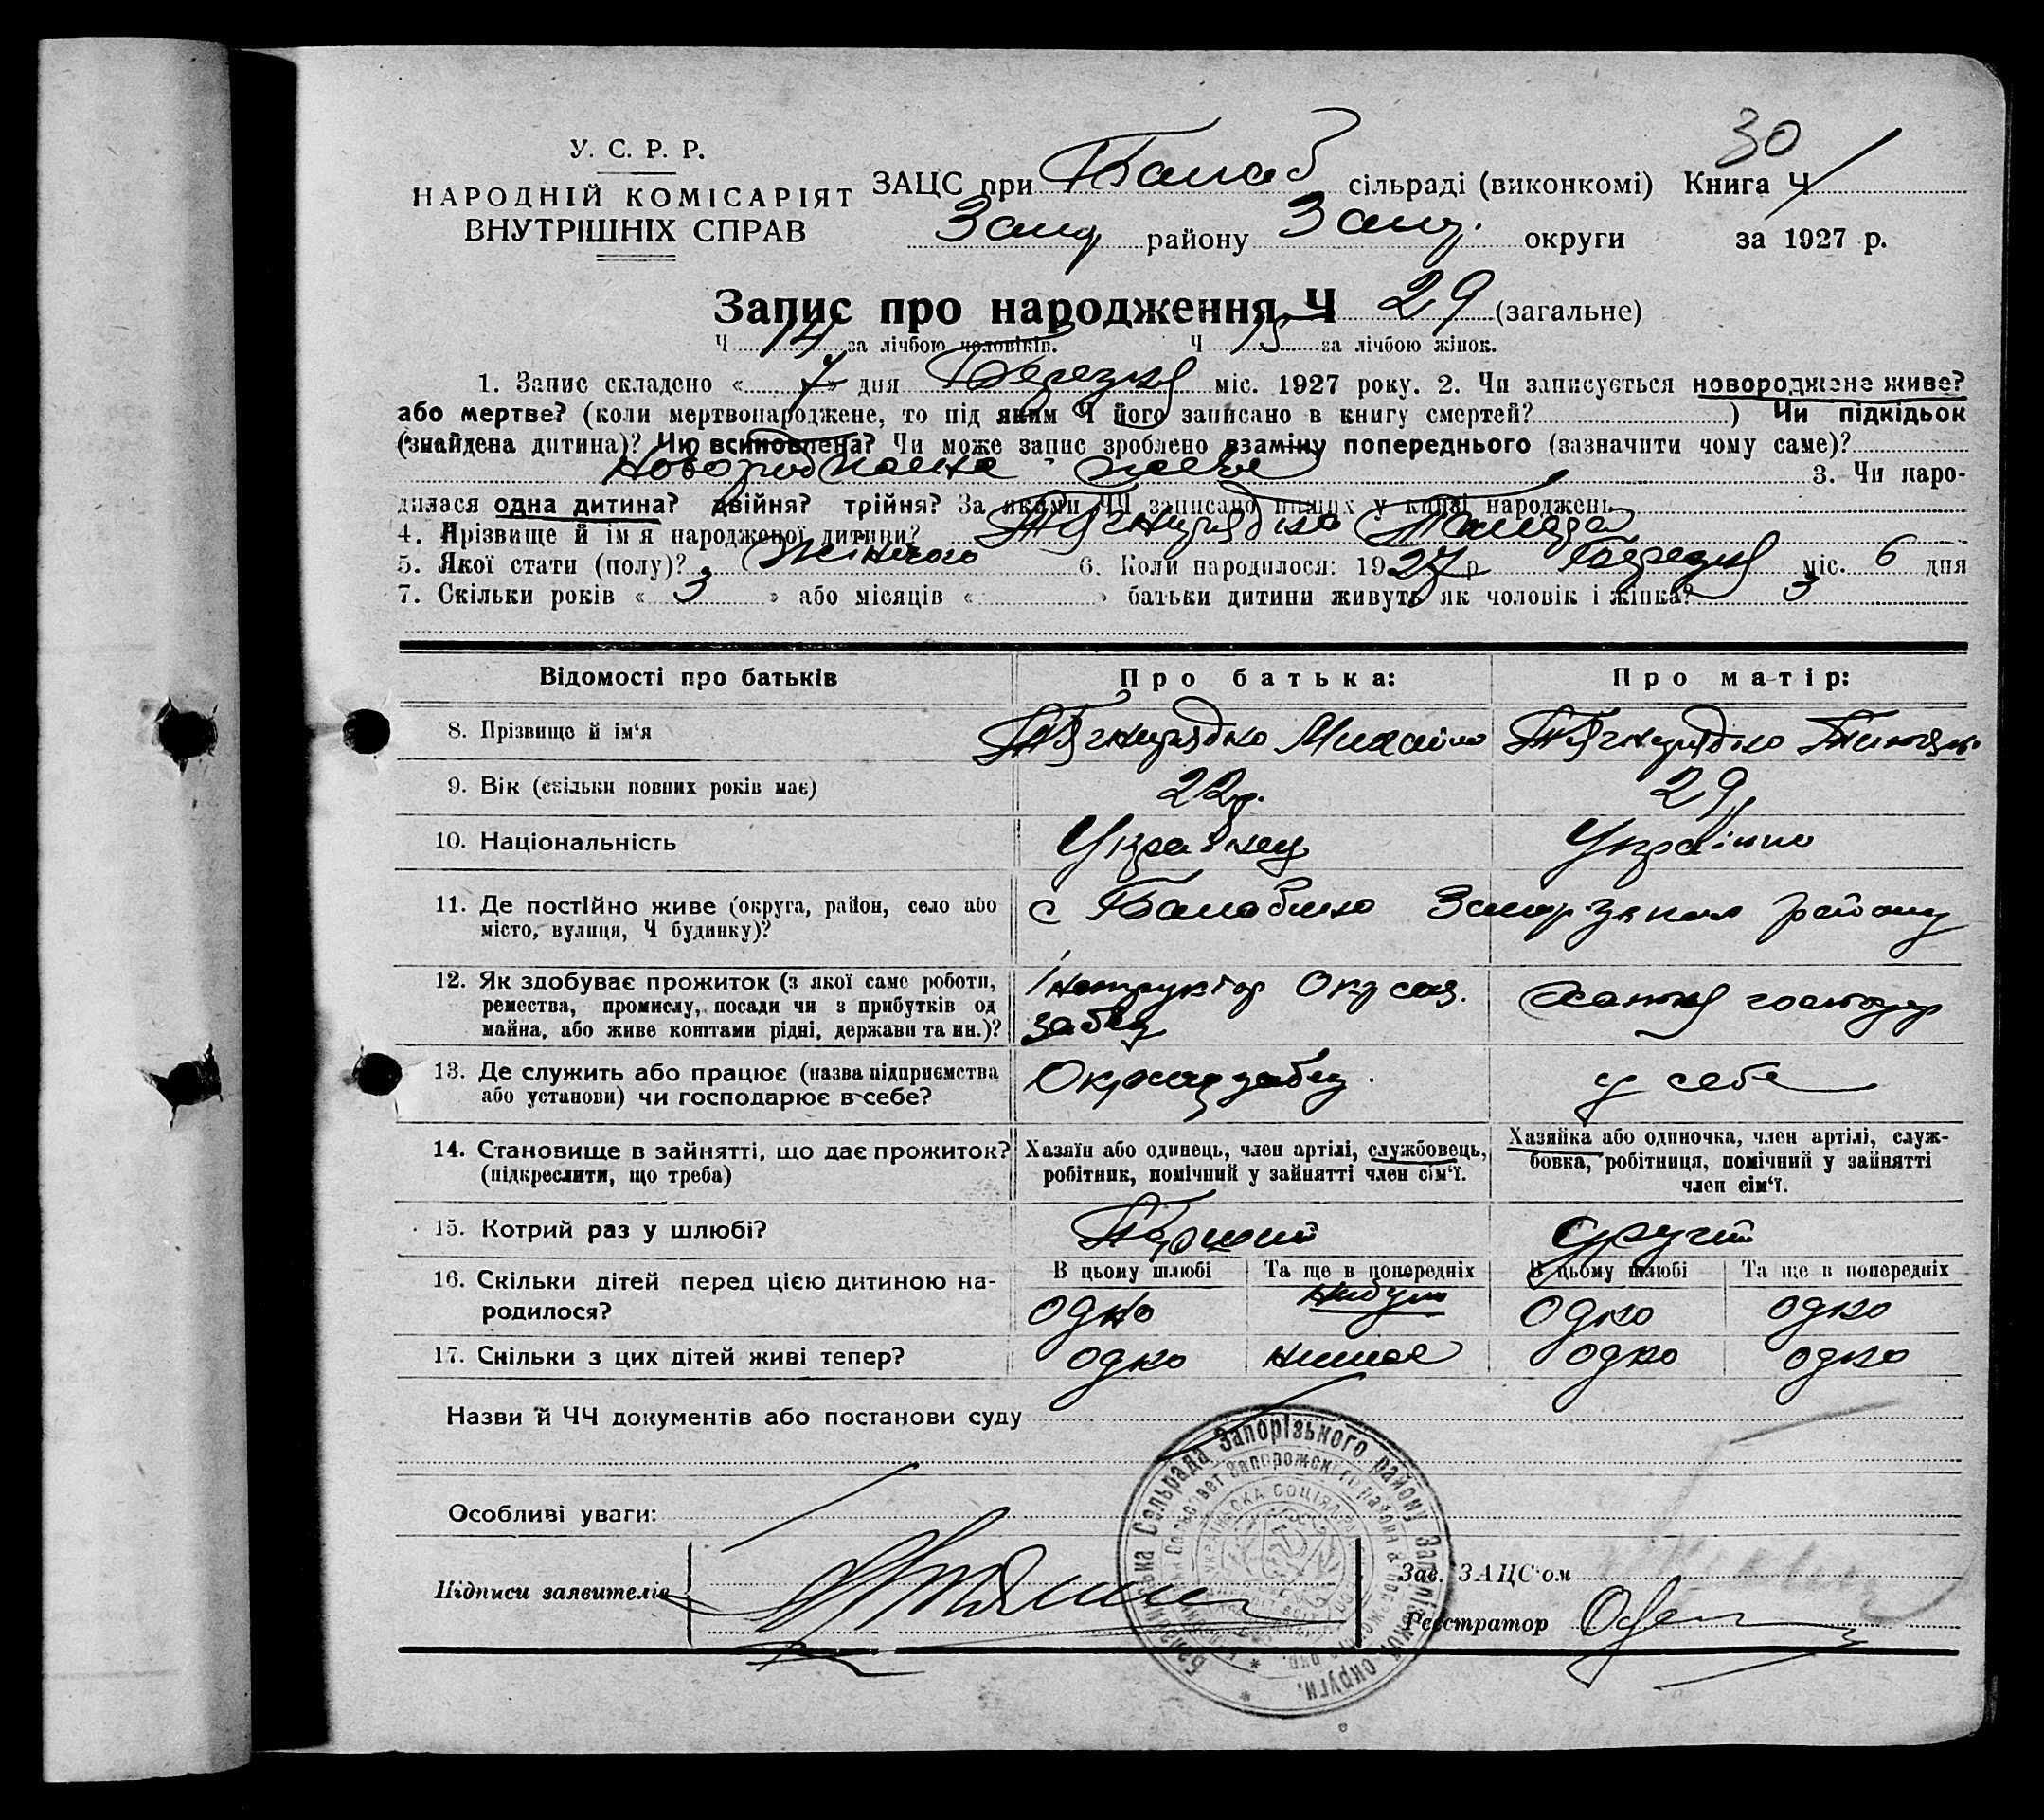 30
У. С. Р. Р.
НАРОДНІЙ КОМІСАРІЯТ
ВНУТРІШНІХ СПРАВ
ЗАЦС при Балаб сільраді (виконкомі) Книга Ч 1
Запор району Запор. округи за 1927 р.
Запис про народження Ч 29 (загальне)
Ч 14 за лічбою чоловіків. Ч 15 за лічбою жінок.
1. Запис складено « 7 » дня Березня міс. 1927 року. 2. Чи записується новороджене живе?
або мертве? (коли мертвонароджене, то під яким Ч його записано в книгу смертей? ) Чи підкідьок
(знайдена дитина)? Чи всиновлена? Чи може запис зроблено взаміну попереднього (зазначити чому саме)?
3. Чи наро-
дилася одна дитина? двійня? трійня? За якими ЧЧ записано инших у книзі народжень
4. Прізвище й ім'я народженої дитини?
5. Якої стати (полу)? Жіночого 6. Коли народилося: 1927 р Березня міс. 6 дня
7. Скільки років « 3 » або місяців « » батьки дитини живуть як чоловік і жінка? 3
Відомості про батьків Про батька: Про матір:
8. Прізвище й ім'я Михайло
9. Вік (скільки повних років має) 22р. 29
10. Національність Українец Українка
11. Де постійно живе (округа, район, село або
місто, вулиця, Ч будинку)? с Балабино Запорізького району
12. Як здобуває прожиток (з якої саме роботи,
ремества, промислу, посади чи з прибутків од
майна, або живе коштами рідні, держави та ин.)? Інструктор
13. Де служить або працює (назва підприємства
або установи) чи господарює в себе? у себе
14. Становище в зайнятті, що дає прожиток?
(підкреслити, що треба)
Хазяїн або одинець, член артілі, службовець,
робітник, помічний у зайнятті член сім'ї.
Хазяйка або одиночка, член артілі, служ-
бовка, робітниця, помічний у зайнятті
член сім'ї.
15. Котрий раз у шлюбі? Перший другий
16. Скільки дітей перед цією дитиною на-
родилося?
В цьому шлюбі Та ще в попередніх В цьому шлюбі Та ще в попередніх
одно небуло одно одно
17. Скільки з цих дітей живі тепер? одно немає одно одно
Назви й ЧЧ документів або постанови суду
Особливі уваги:
Підписи заявителів
Зав. ЗАЦС'ом
Реєстратор
Запорізького району Запорізької округи.